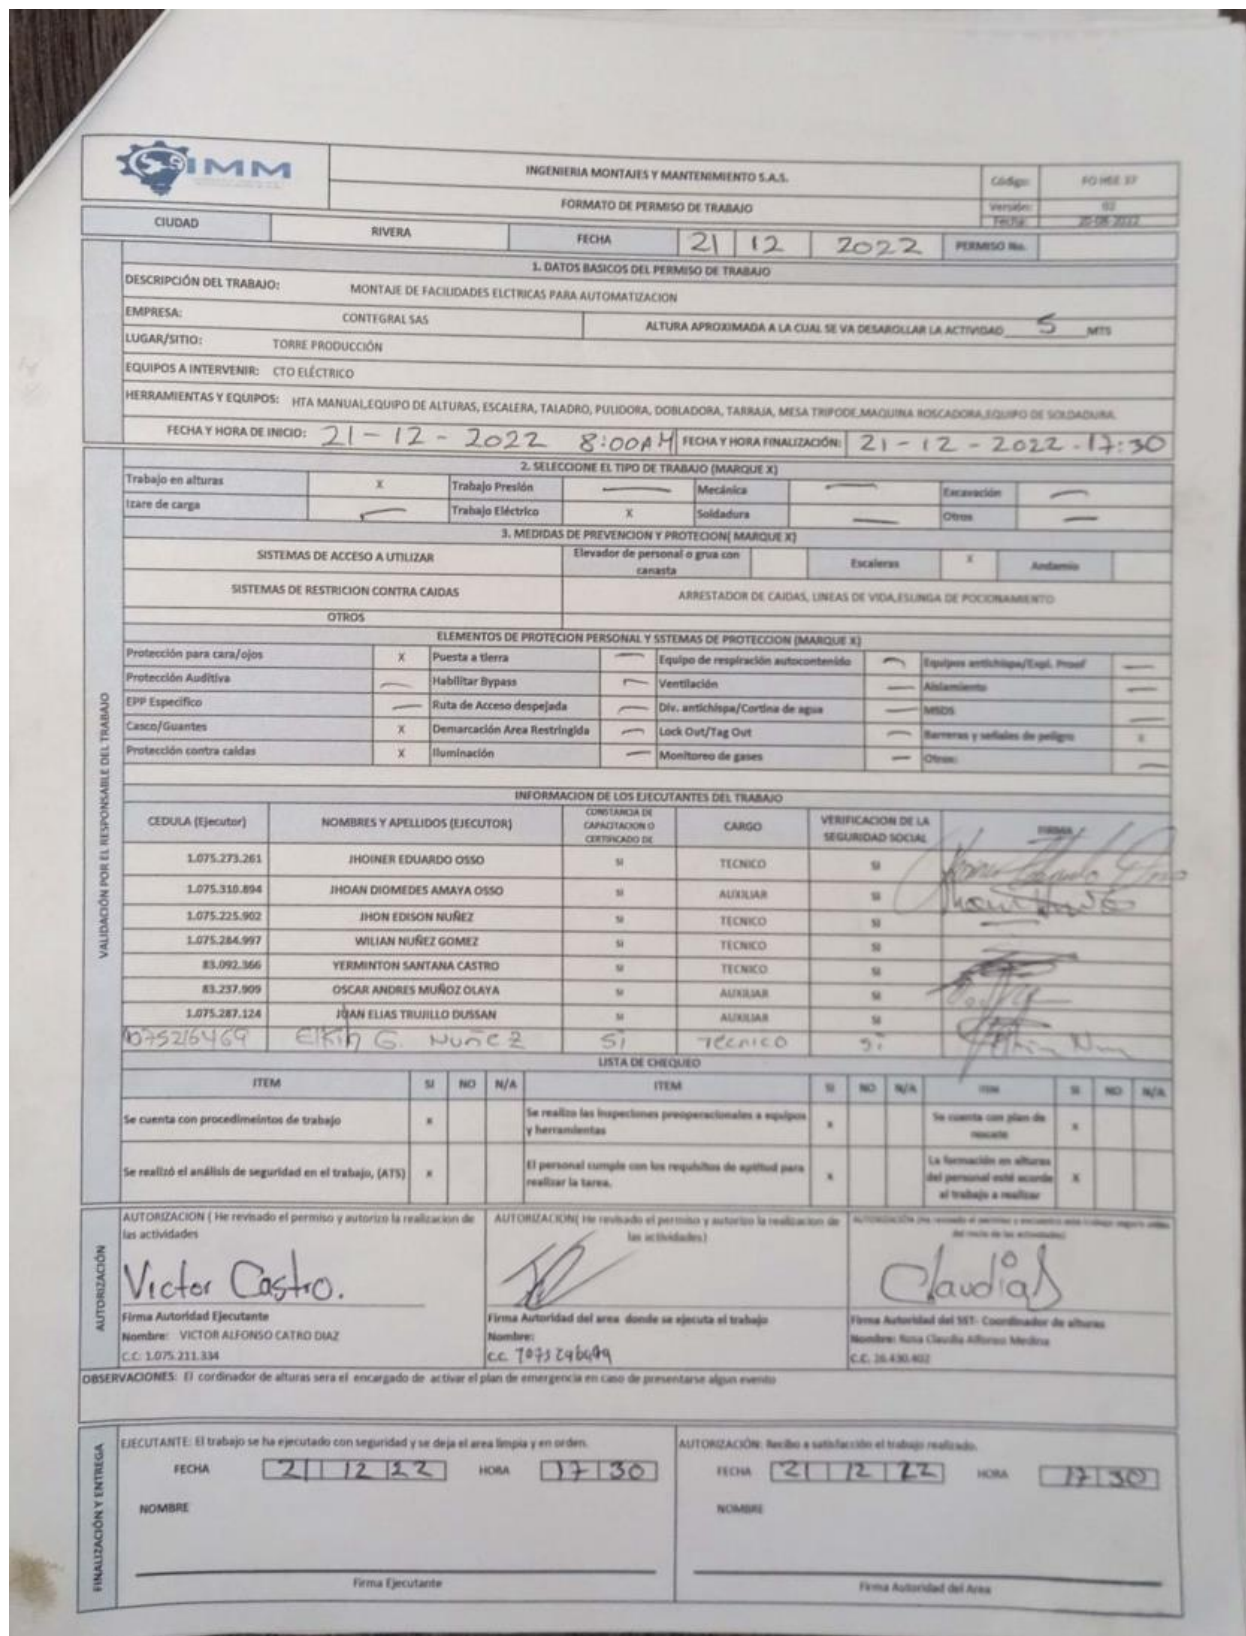 IMM
INGENIERIA MONTAJES Y MANTENIMIENTO S.A.S.
Código: FO HSE 37
FORMATO DE PERMISO DE TRABAJO
Versión: 02
Fecha: 20-08-2022
CIUDAD RIVERA FECHA 21 12 2022 PERMISO No.
1. DATOS BASICOS DEL PERMISO DE TRABAJO
DESCRIPCIÓN DEL TRABAJO: MONTAJE DE FACILIDADES ELCTRICAS PARA AUTOMATIZACION
EMPRESA: CONTEGRAL SAS ALTURA APROXIMADA A LA CUAL SE VA DESAROLLAR LA ACTIVIDAD 5 MTS
LUGAR/SITIO: TORRE PRODUCCIÓN
EQUIPOS A INTERVENIR: CTO ELÉCTRICO
HERRAMIENTAS Y EQUIPOS: HTA MANUAL,EQUIPO DE ALTURAS, ESCALERA, TALADRO, PULIDORA, DOBLADORA, TARRAJA, MESA TRIPODE,MAQUINA ROSCADORA,EQUIPO DE SOLDADURA.
FECHA Y HORA DE INICIO: 21-12-2022 8:00AM FECHA Y HORA FINALIZACIÓN: 21-12-2022-17:30
VALIDACIÓN POR EL RESPONSABLE DEL TRABAJO
2. SELECCIONE EL TIPO DE TRABAJO (MARQUE X)
Trabajo en alturas X Trabajo Presión — Mecánica — Excavación —
Izare de carga — Trabajo Eléctrico X Soldadura — Otros —
3. MEDIDAS DE PREVENCION Y PROTECION( MARQUE X)
SISTEMAS DE ACCESO A UTILIZAR Elevador de personal o grua con canasta Escaleras X Andamio
SISTEMAS DE RESTRICION CONTRA CAIDAS ARRESTADOR DE CAIDAS, LINEAS DE VIDA,ESLINGA DE POCIONAMIENTO
OTROS
ELEMENTOS DE PROTECION PERSONAL Y SSTEMAS DE PROTECCION (MARQUE X)
Protección para cara/ojos X Puesta a tierra — Equipo de respiración autocontenido — Equipos antichispa/Expl. Proof —
Protección Auditiva — Habilitar Bypass — Ventilación — Aislamiento —
EPP Especifico — Ruta de Acceso despejada — Div. antichispa/Cortina de agua — MSDS —
Casco/Guantes X Demarcación Area Restringida — Lock Out/Tag Out — Barreras y señales de peligro X
Protección contra caidas X Iluminación — Monitoreo de gases — Otros: —
INFORMACION DE LOS EJECUTANTES DEL TRABAJO
CEDULA (Ejecutor) NOMBRES Y APELLIDOS (EJECUTOR) CONSTANCIA DE CAPACITACION O CERTIFICADO DE CARGO VERIFICACION DE LA SEGURIDAD SOCIAL FIRMA
1.075.273.261 JHOINER EDUARDO OSSO SI TECNICO SI
1.075.310.894 JHOAN DIOMEDES AMAYA OSSO SI AUXILIAR SI
1.075.225.902 JHON EDISON NUÑEZ SI TECNICO SI
1.075.284.997 WILIAN NUÑEZ GOMEZ SI TECNICO SI
83.092.366 YERMINTON SANTANA CASTRO SI TECNICO SI
83.237.909 OSCAR ANDRES MUÑOZ OLAYA SI AUXILIAR SI
1.075.287.124 JUAN ELIAS TRUJILLO DUSSAN SI AUXILIAR SI
1075216469 Elkin G. Nuñez Si Tecnico Si
LISTA DE CHEQUEO
ITEM SI NO N/A ITEM SI NO N/A ITEM SI NO N/A
Se cuenta con procedimeintos de trabajo x Se realizo las inspeciones preoperacionales a equipos y herramientas x Se cuenta con plan de rescate x
Se realizó el análisis de seguridad en el trabajo, (ATS) x El personal cumple con los requisitos de aptitud para realizar la tarea. x La formación en alturas del personal esté acorde al trabajo a realizar X
AUTORIZACIÓN
AUTORIZACION ( He revisado el permiso y autorizo la realizacion de las actividades
AUTORIZACION( He revisado el permiso y autorizo la realizacion de las actividades)
Victor Castro.
ClaudiaA
Firma Autoridad Ejecutante
Nombre: VICTOR ALFONSO CATRO DIAZ
C.C: 1.075.211.334
Firma Autoridad del area donde se ejecuta el trabajo
Nombre:
C.C.
Firma Autoridad del SST- Coordinador de alturas
Nombre: Rosa Claudia Alfonso Medina
C.C. 26.430.402
OBSERVACIONES: El cordinador de alturas sera el encargado de activar el plan de emergencia en caso de presentarse algun evento
FINALIZACIÓN Y ENTREGA
EJECUTANTE: El trabajo se ha ejecutado con seguridad y se deja el area limpia y en orden.
FECHA 21 12 22 HORA 17 30
NOMBRE
Firma Ejecutante
AUTORIZACIÓN: Recibo a satisfacción el trabajo realizado.
FECHA 21 12 22 HORA 17 30
NOMBRE
Firma Autoridad del Area